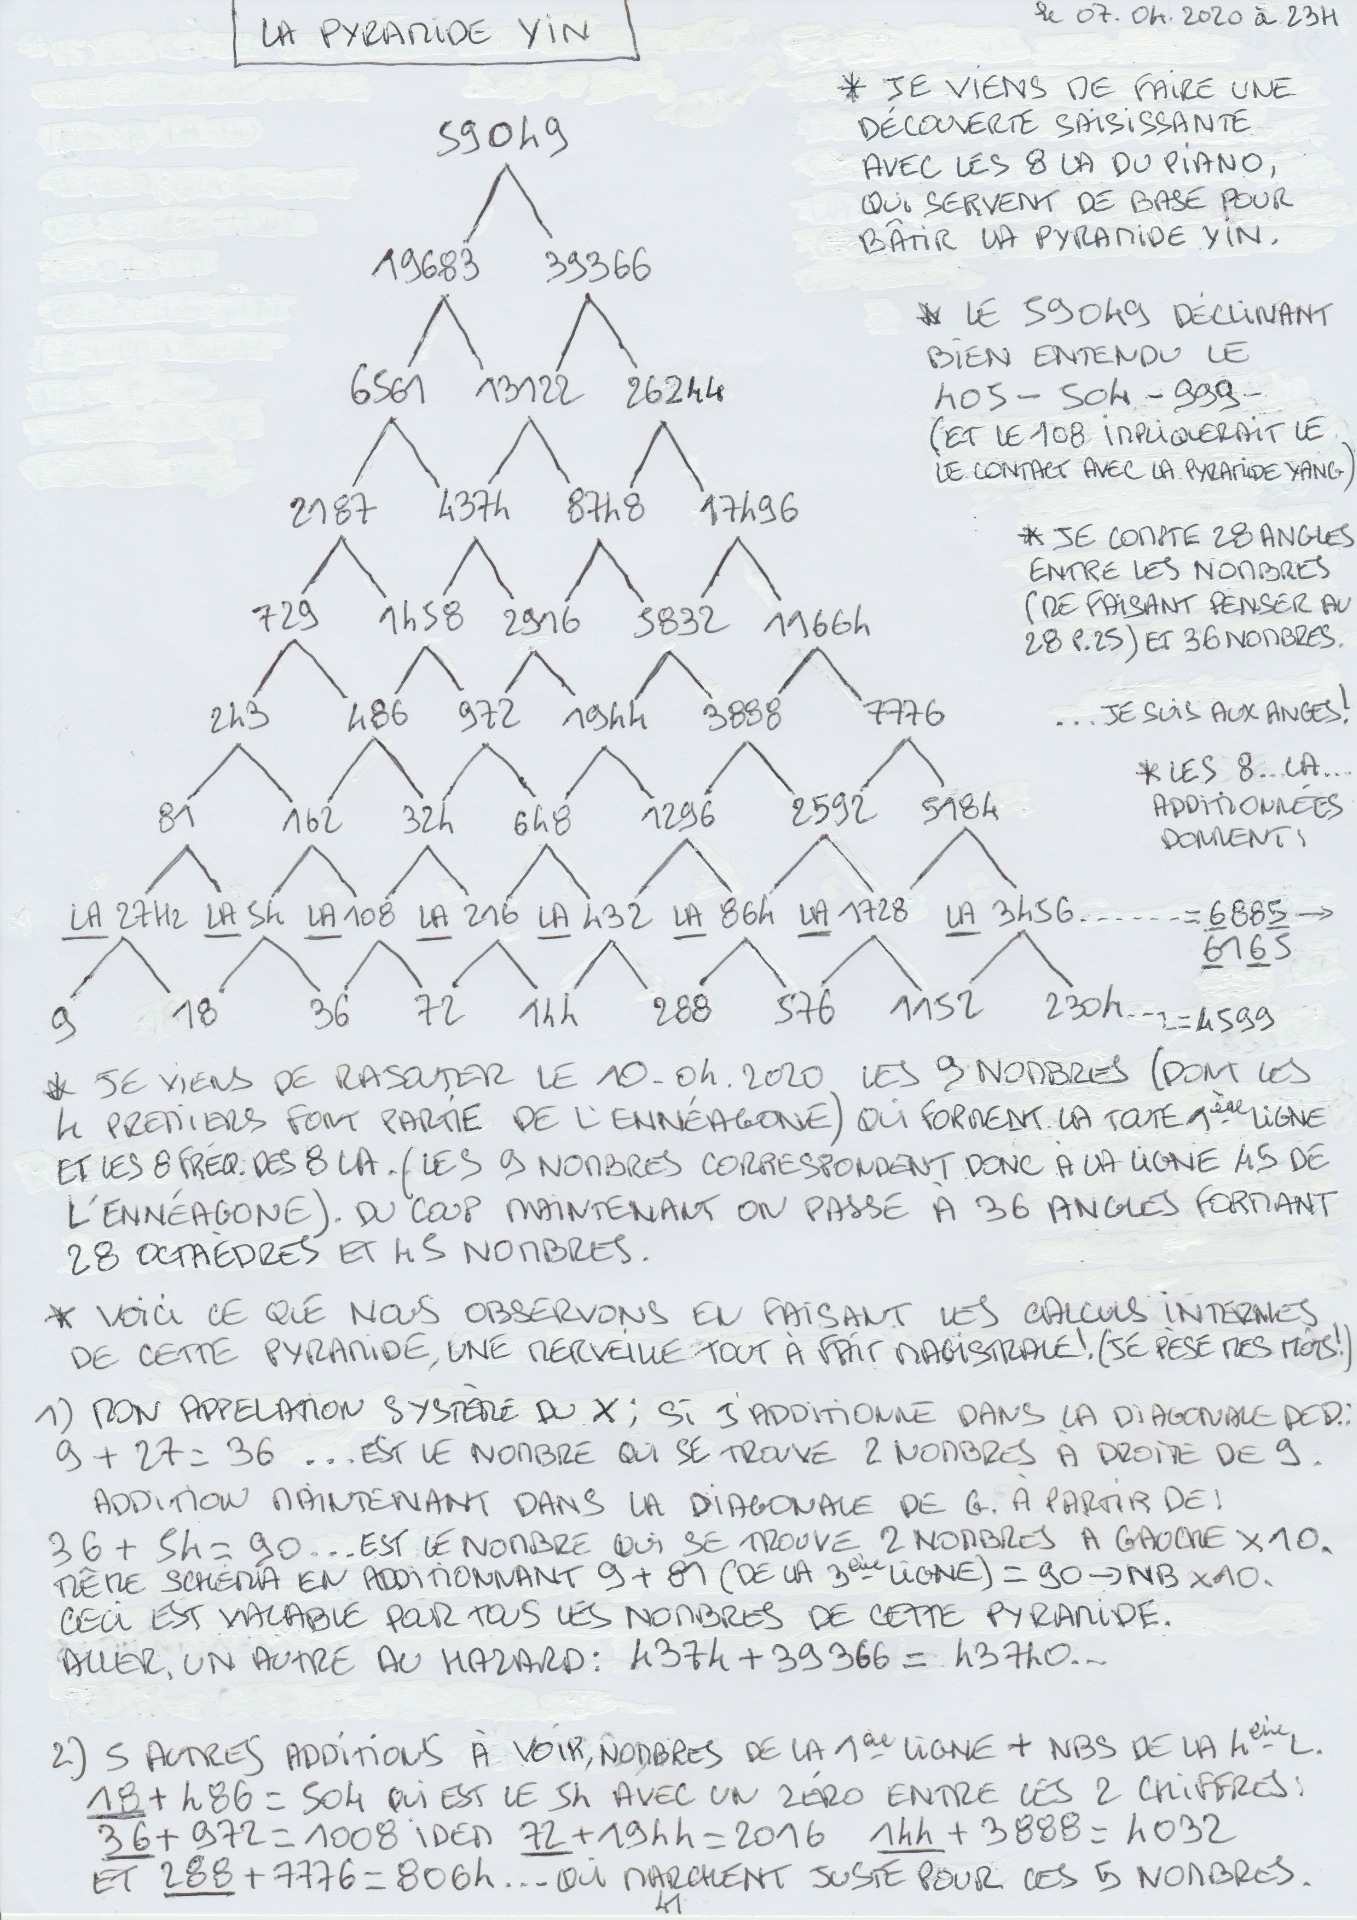 LA PYRAMIDE YIN
le 07.04.2020 à 23H
* JE VIENS DE FAIRE UNE
DÉCOUVERTE SAISISSANTE
AVEC LES 8 LA DU PIANO,
QUI SERVENT DE BASE POUR
BÂTIR LA PYRAMIDE YIN.
* LE 59049 DÉCLINANT
BIEN ENTENDU LE
405 - 504 - 999 -
(ET LE 108 IMPLIQUERAIT LE
LE CONTACT AVEC LA PYRAMIDE YANG)
* JE COMPTE 28 ANGLES
ENTRE LES NOMBRES
(ME FAISANT PENSER AU
28 P.25) ET 36 NOMBRES.
... JE SUIS AUX ANGES!
* LES 8.. LA...
ADDITIONNÉES
DONNENT:
59049
19683 39366
6561 13122 26244
2187 4374 8748 17496
729 1458 2916 5832 11664
243 486 972 1944 3888 7776
81 162 324 648 1296 2592 5184
LA 27HZ LA 54 LA 108 LA 216 LA 432 LA 864 LA 1728 LA 3456 ...... = 6885 →
6165
9 18 36 72 144 288 576 1152 2304 ... = 4599
* JE VIENS DE RAJOUTER LE 10-04.2020 LES 9 NOMBRES (DONT LES
4 PREMIERS FONT PARTIE DE L'ENNÉAGONE) QUI FORMENT LA TOUTE 1ère LIGNE
ET LES 8 FRÉQ. DES 8 LA. (LES 9 NOMBRES CORRESPONDENT DONC À LA LIGNE 45 DE
L'ENNÉAGONE). DU COUP MAINTENANT ON PASSE À 36 ANGLES FORMANT
28 OCTAÈDRES ET 45 NOMBRES.
* VOICI CE QUE NOUS OBSERVONS EN FAISANT LES CALCULS INTERNES
DE CETTE PYRAMIDE, UNE MERVEILLE TOUT À FAIT MAGISTRALE! (JE PÈSE MES MOTS!)
1) MON APPELATION SYSTÈME DU X; SI J'ADDITIONNE DANS LA DIAGONALE DE D.:
9 + 27 = 36 ... EST LE NOMBRE QUI SE TROUVE 2 NOMBRES À DROITE DE 9.
ADDITION MAINTENANT DANS LA DIAGONALE DE G. À PARTIR DE:
36 + 54 = 90 ... EST LE NOMBRE QUI SE TROUVE 2 NOMBRES A GAUCHE X10.
MÊME SCHÉMA EN ADDITIONNANT 9 + 81 (DE LA 3ème LIGNE) = 90 → NB X10.
CECI EST VALABLE POUR TOUS LES NOMBRES DE CETTE PYRAMIDE.
ALLER, UN AUTRE AU HAZARD: 4374 + 39366 = 43740...
2) 5 AUTRES ADDITIONS À VOIR, NOMBRES DE LA 1ère LIGNE + NBS DE LA 4ème L.
18 + 486 = 504 QUI EST LE 54 AVEC UN ZÉRO ENTRE LES 2 CHIFFRES:
36 + 972 = 1008 IDEM 72 + 1944 = 2016 144 + 3888 = 4032
ET 288 + 7776 = 8064 ... QUI MARCHENT JUSTE POUR CES 5 NOMBRES.
41